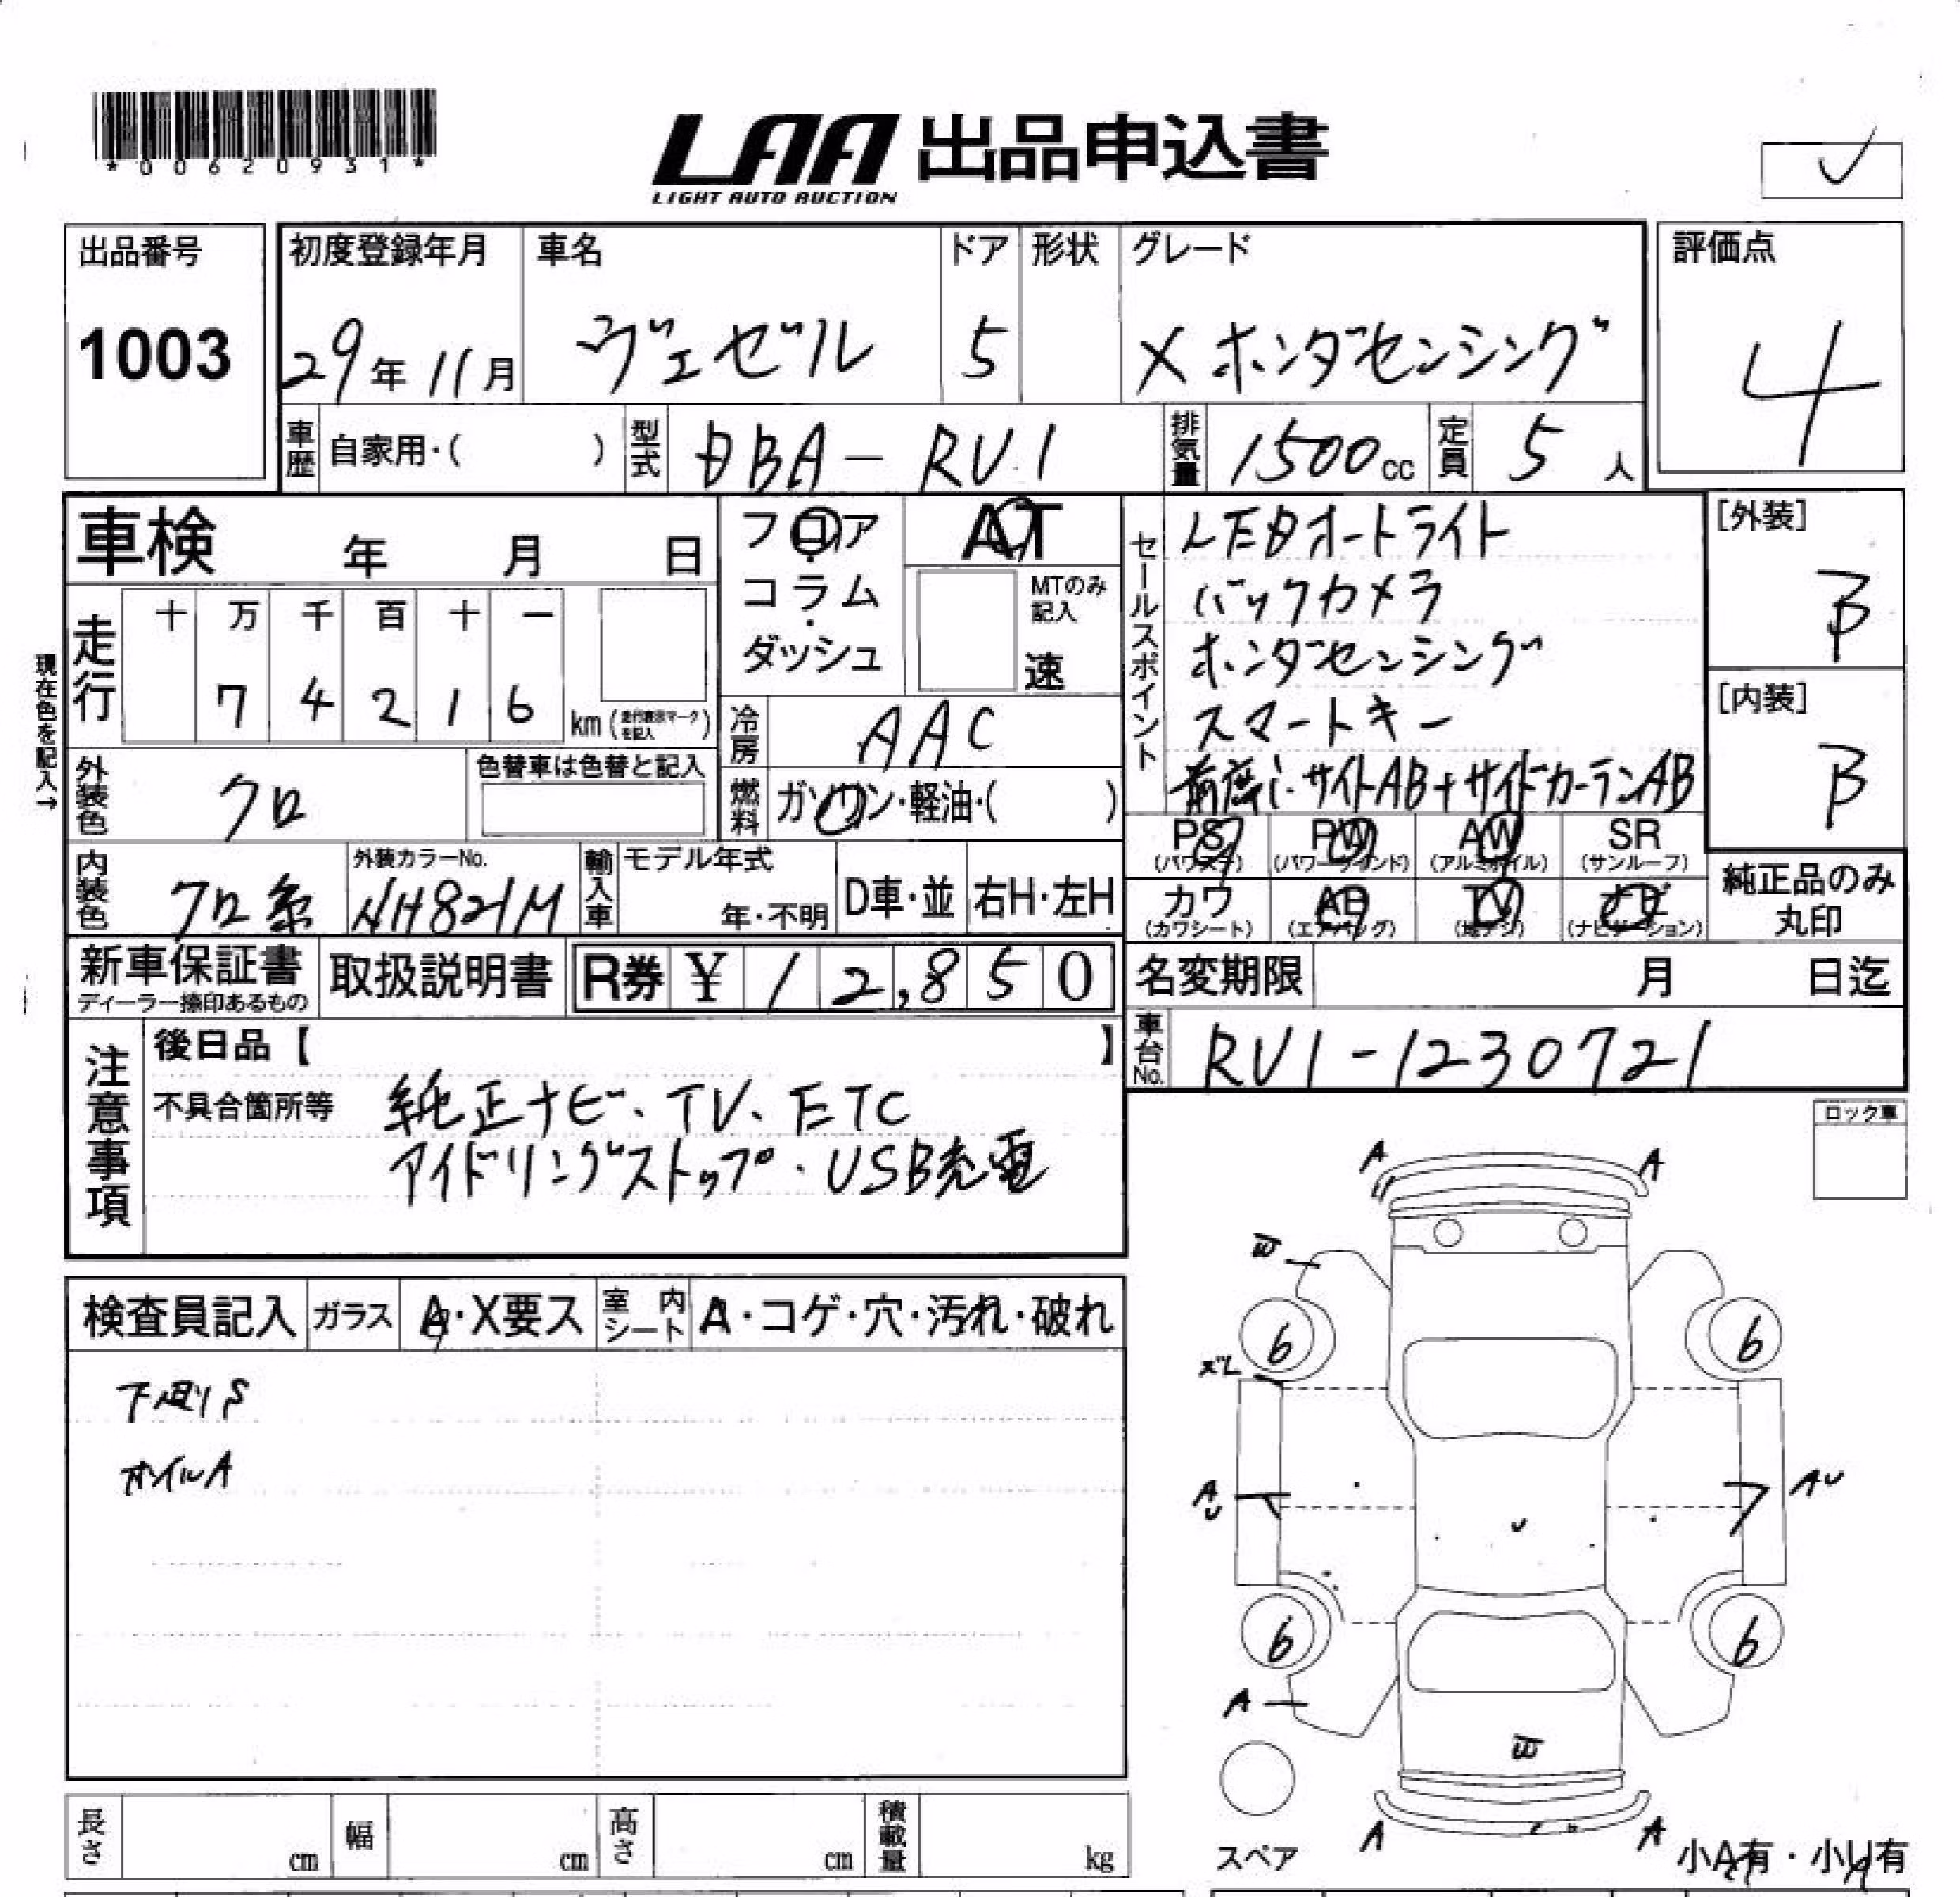 *00620931*
LAA 出品申込書
LIGHT AUTO AUCTION
出品番号
1003
初度登録年月
29年11月
車名
ヴェゼル
ドア
5
形状
グレード
X ホンダセンシング
評価点
4
車歴
自家用・( )
型式
DBA-RV1
排気量
1500cc
定員
5人
車検 年 月 日
フロア
コラム
ダッシュ
AT
MTのみ
記入
速
セールスポイント
LEDオートライト
バックカメラ
ホンダセンシング
スマートキー
サイドAB+サイドカーテンAB
[外装]
B
[内装]
B
現在色を記入→
走行
十 万 千 百 十 一
7 4 2 1 6
km(走行表示マークを記入)
冷房
AAC
外装色
クロ
色替車は色替と記入
燃料
ガソリン・軽油・( )
PS
(パワステ)
PW
(パワーウインド)
AW
(アルミホイル)
SR
(サンルーフ)
内装色
クロ系
外装カラーNo.
NH821M
輸入車
モデル年式
年・不明
D車・並
右H・左H
カワ
(カワシート)
AB
(エアバッグ)
TV
(地デジ)
ナビ
(ナビゲーション)
純正品のみ
丸印
新車保証書
ディーラー捺印あるもの
取扱説明書
R券 ¥12,850
名変期限 月 日迄
車台No.
RV1-1230721
注意事項
後日品【 】
不具合箇所等
純正ナビ、TV、ETC
アイドリングストップ・USB充電
ロック車
検査員記入
ガラス
A・X要ス
室内シート
A・コゲ・穴・汚れ・破れ
下廻りS
オイルA
A A
W
6 6
A
U
AU
U
6 6
A
W
A A
スペア
小A有・小U有
長さ cm
幅 cm
高さ cm
積載量 kg